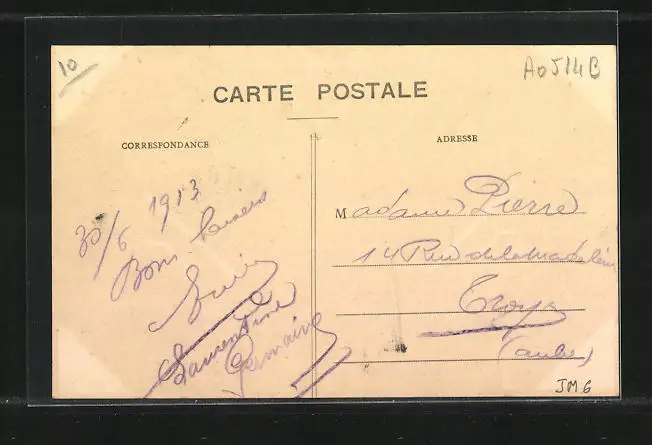 10
Ao514B
CARTE POSTALE
CORRESPONDANCE
ADRESSE
30/6 1913
Bons baisers
Laurentine
Germaine
Madame Pierre
14 Rue de la Madeleine
Troyes
(Aube)
JM6